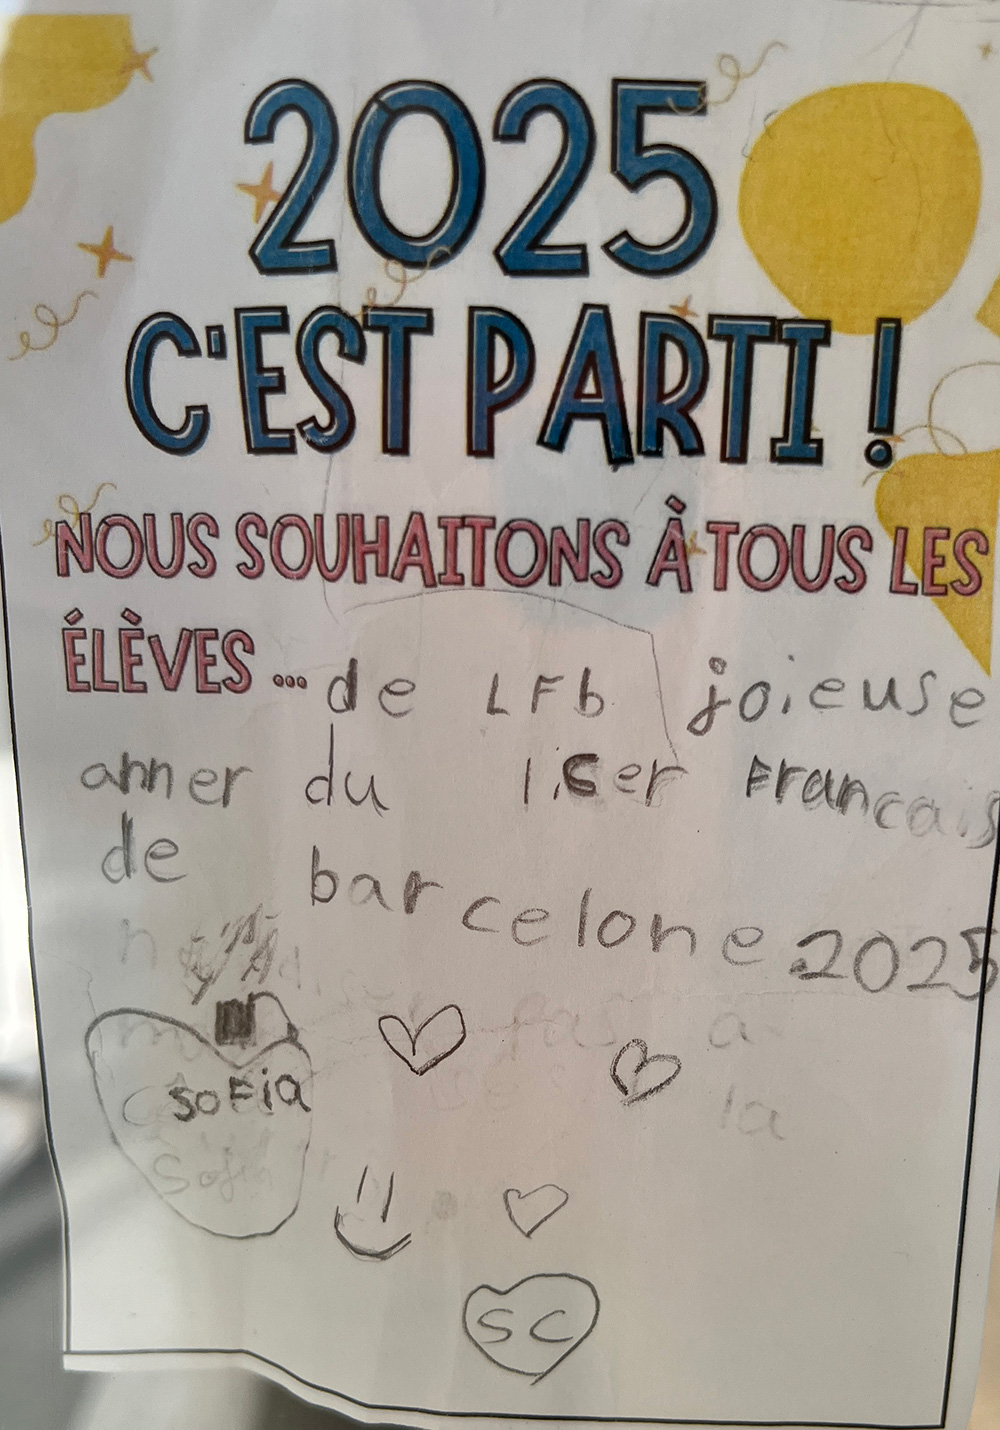 2025
C'EST PARTI !
NOUS SOUHAITONS À TOUS LES
ÉLÈVES ... de LFb joieuse
anner du liser Francais
de barcelone 2025
a
la
SoFia
SC